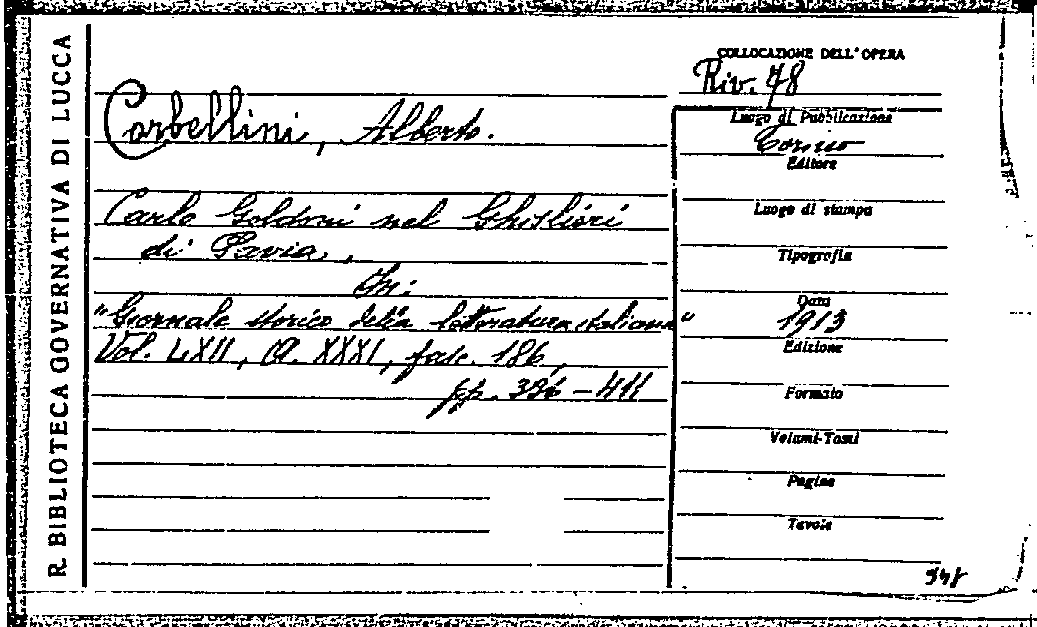 R. BIBLIOTECA GOVERNATIVA DI LUCCA
Corbellini, Alberto.
Carlo Goldoni nel Ghislieri
di Pavia.,
In:
"Giornale storico della letteratura italiana"
Vol. LXII, A. XXXI, fasc. 186,
pp. 396-411
COLLOCAZIONE DELL'OPERA
Riv. 78
Luogo di Pubblicazione
Torino
Editore
Luogo di stampa
Tipografia
Data
1913
Edizione
Formato
Volumi-Tomi
Pagine
Tavole